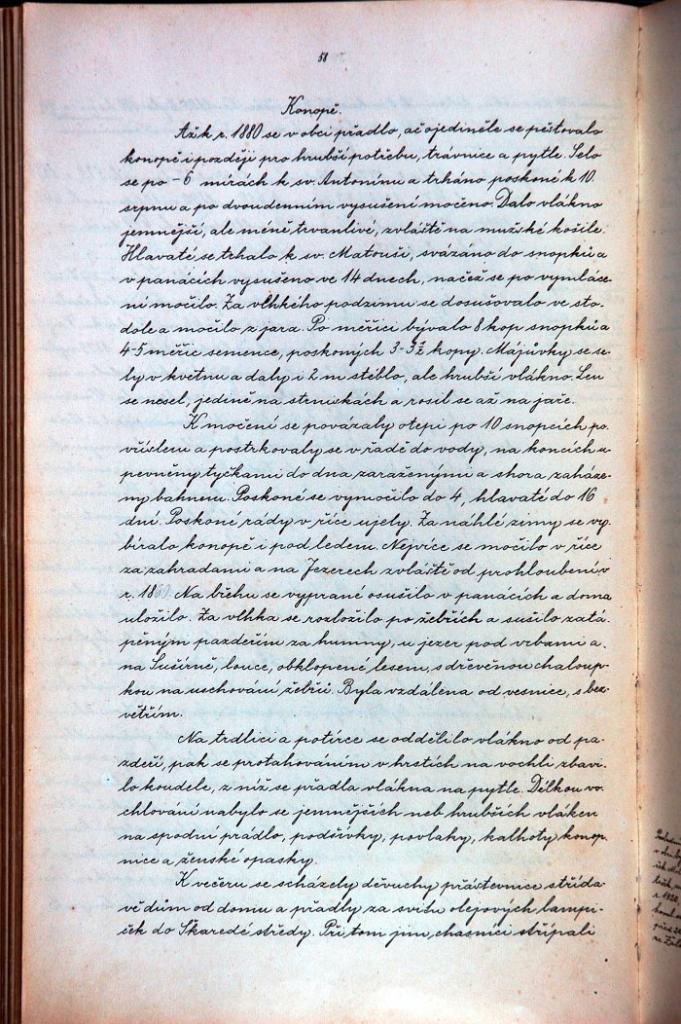 58
Konopě.
Až k r. 1880 se v obci předlo, ač ojediněle se pěstovalo
konopě i později pro hrubší potřebu, trávnice a pytle. Selo
se po -6 mírách k sv. Antonínu a trháno poskoné k 10.
srpnu a po dvoudenním vysušení močeno. Dalo vlákno
jemnější, ale méně trvanlivé, zvláště na mužské košile.
Hlavaté se trhalo k sv. Matouši, svázáno do snopků a
v panácích vysušeno ve 14 dnech, načež se po vymláce-
ní močilo. Za vlhkého podzimu se dosušovalo ve sto-
dole a močilo z jara. Po měřici bývalo 8 kop snopků a
4-5 měřic semence, poskoných 3-3½ kopy. Májůvky se se-
ly v květnu a daly i 2 m stéblo, ale hrubší vlákno. Len
se nesel, jedině na strniskách a rosil se až na jaře.
K močení se povázaly otepi po 10 snopcích po-
vříslem a postrkovaly se v řadě do vody, na koncích u-
pevněny tyčkami do dna zaraženými a shora zaháze-
ny bahnem. Poskoné se vymočilo do 4, hlavaté do 16
dní. Poskoné rády v říce ujely. Za náhlé zimy se vy-
bíralo konopě i pod ledem. Nejvíce se močilo v říce
za zahradami a na Jezerech zvláště od prohloubení v
r. 18 . Na břehu se vyprané osušilo v panácích a doma
uložilo. Za vlhka se rozložilo po žebřích a sušilo zatá-
pěným pazdeřím za humny, u jezer pod vrbami a
na Sušírně, louce, obklopené lesem, s dřevěnou chaloup-
kou na uschování žebřů. Byla vzdálena od vesnice, s bez-
větřím.
Na trdlici a potírce se oddělilo vlákno od pa-
zdeří, pak se protahováním v hrstích na vochli zbavi-
lo koudele, z níž se předla vlákna na pytle. Délkou vo-
chlování nabylo se jemnějších neb hrubších vláken
na spodní prádlo, podšívky, povlaky, kalhoty konop-
nice a ženské opasky.
K večeru se scházely děvuchy přástevnice střída-
vě dům od domu a předly za svitu olejových lampi-
ček do Škaredé středy. Při tom jim chasníci střípali